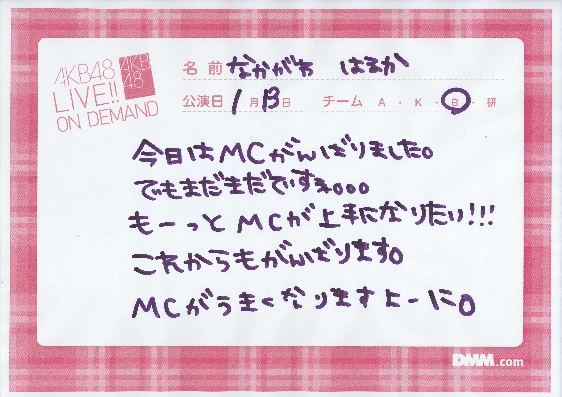 AKB48
LIVE!!
ON DEMAND
AKB
48
名前 なかがわ はるか
公演日 1月13日 チーム A・K・B・研
今日はMCがんばりました。
でもまだまだですね。。。
もーっとMCが上手になりたい!!!
これからもがんばります。
MCがうまくなりますよーに。
DMM.com